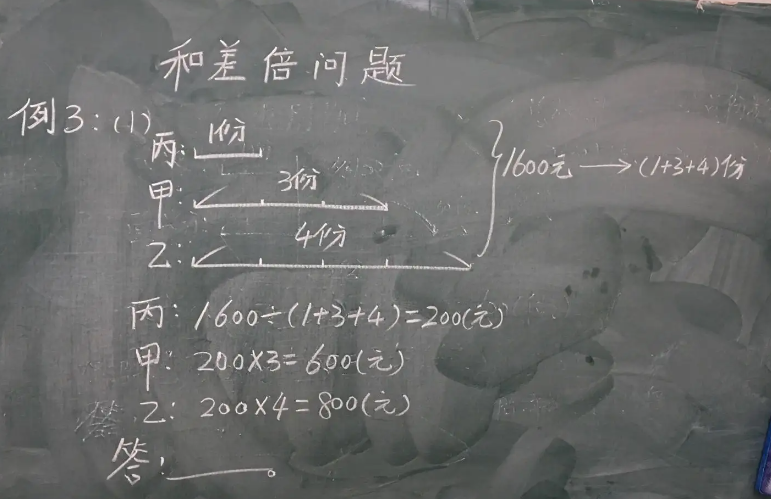 和差倍问题
例3:(1)
丙: 1份
甲: 3份
乙: 4份
1600元→(1+3+4)份
丙: 1600÷(1+3+4)=200(元)
甲: 200×3=600(元)
乙: 200×4=800(元)
答:______。